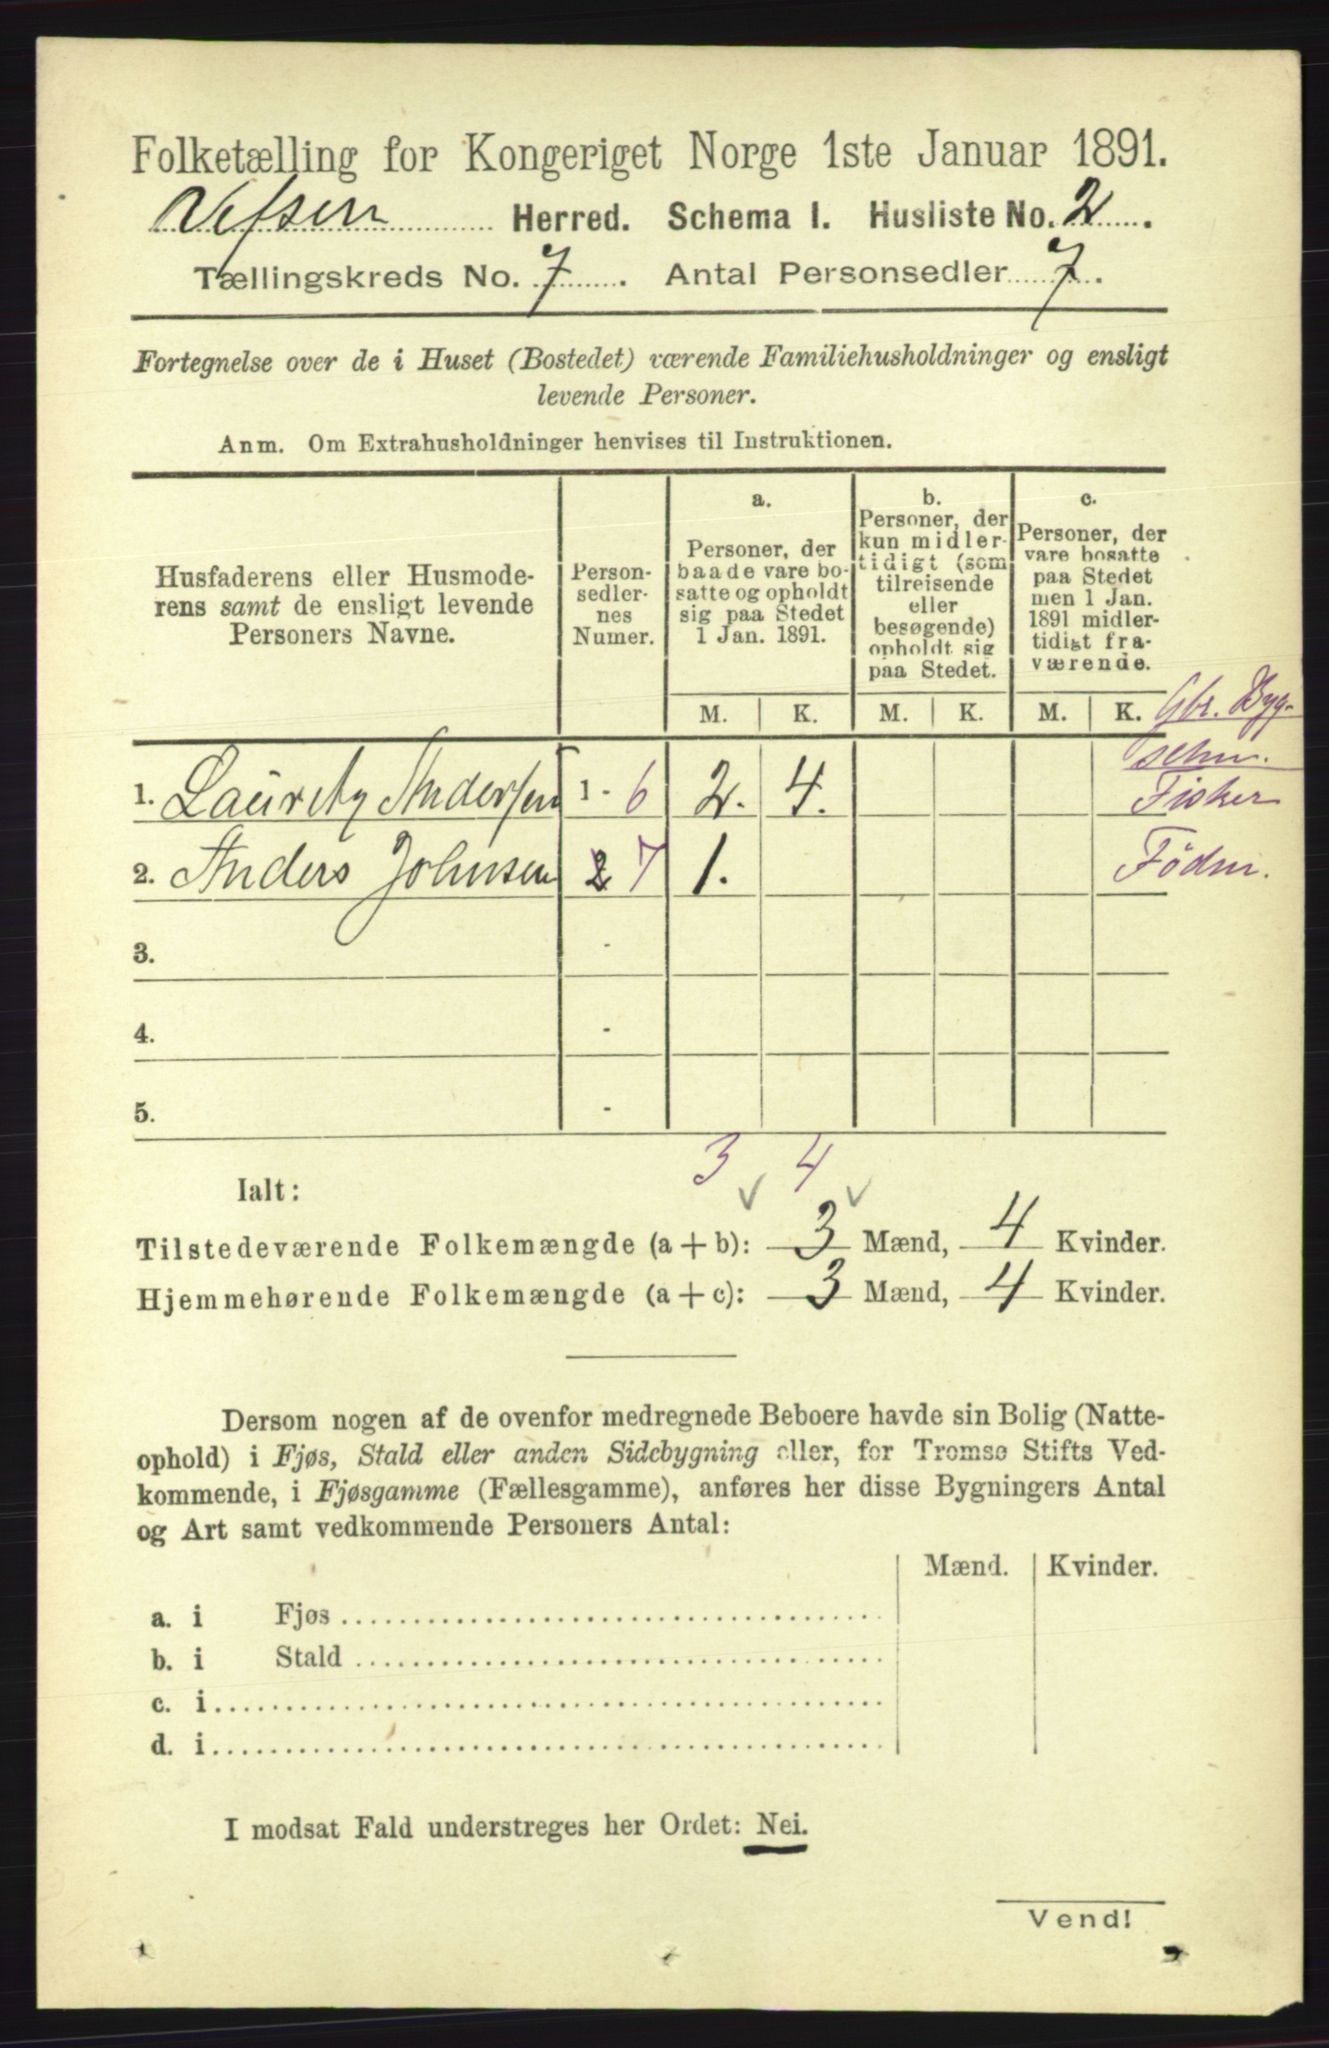 Folketælling for Kongeriget Norge 1ste Januar 1891.
Vefsen Herred. Schema I. Husliste No. 2.
Tællingskreds No. 7. Antal Personsedler 7.
Fortegnelse over de i Huset (Bostedet) værende Familiehusholdninger og ensligt
levende Personer.
Anm. Om Extrahusholdninger henvises til Instruktionen.
Husfaderens eller Husmode-
rens samt de ensligt levende
Personers Navne.
Person-
sedler-
nes
Numer.
a.
Personer, der
baade vare bo-
satte og opholdt
sig paa Stedet
1 Jan. 1891.
b.
Personer, der
kun midler-
tidigt (som
tilreisende
eller
besøgende)
opholdt sig
paa Stedet.
c.
Personer, der
vare bosatte
paa Stedet
men 1 Jan.
1891 midler-
tidigt fra-
værende.
M. K. M. K. M. K. Gbr. Byg-
selm.
1. Lauritz Andersen 1 - 6 2. 4. Fisker
2. Anders Johnsen 2 7 1. Födm.
3. -
4. -
5. -
3 4
Ialt:
Tilstedeværende Folkemængde (a + b): 3 Mænd, 4 Kvinder.
Hjemmehørende Folkemængde (a + c): 3 Mænd, 4 Kvinder.
Dersom nogen af de ovenfor medregnede Beboere havde sin Bolig (Natte-
ophold) i Fjøs, Stald eller anden Sidebygning eller, for Tromsø Stifts Ved-
kommende, i Fjøsgamme (Fællesgamme), anføres her disse Bygningers Antal
og Art samt vedkommende Personers Antal:
Mænd. Kvinder.
a. i Fjøs
b. i Stald
c. i
d. i
I modsat Fald understreges her Ordet: Nei.
Vend!